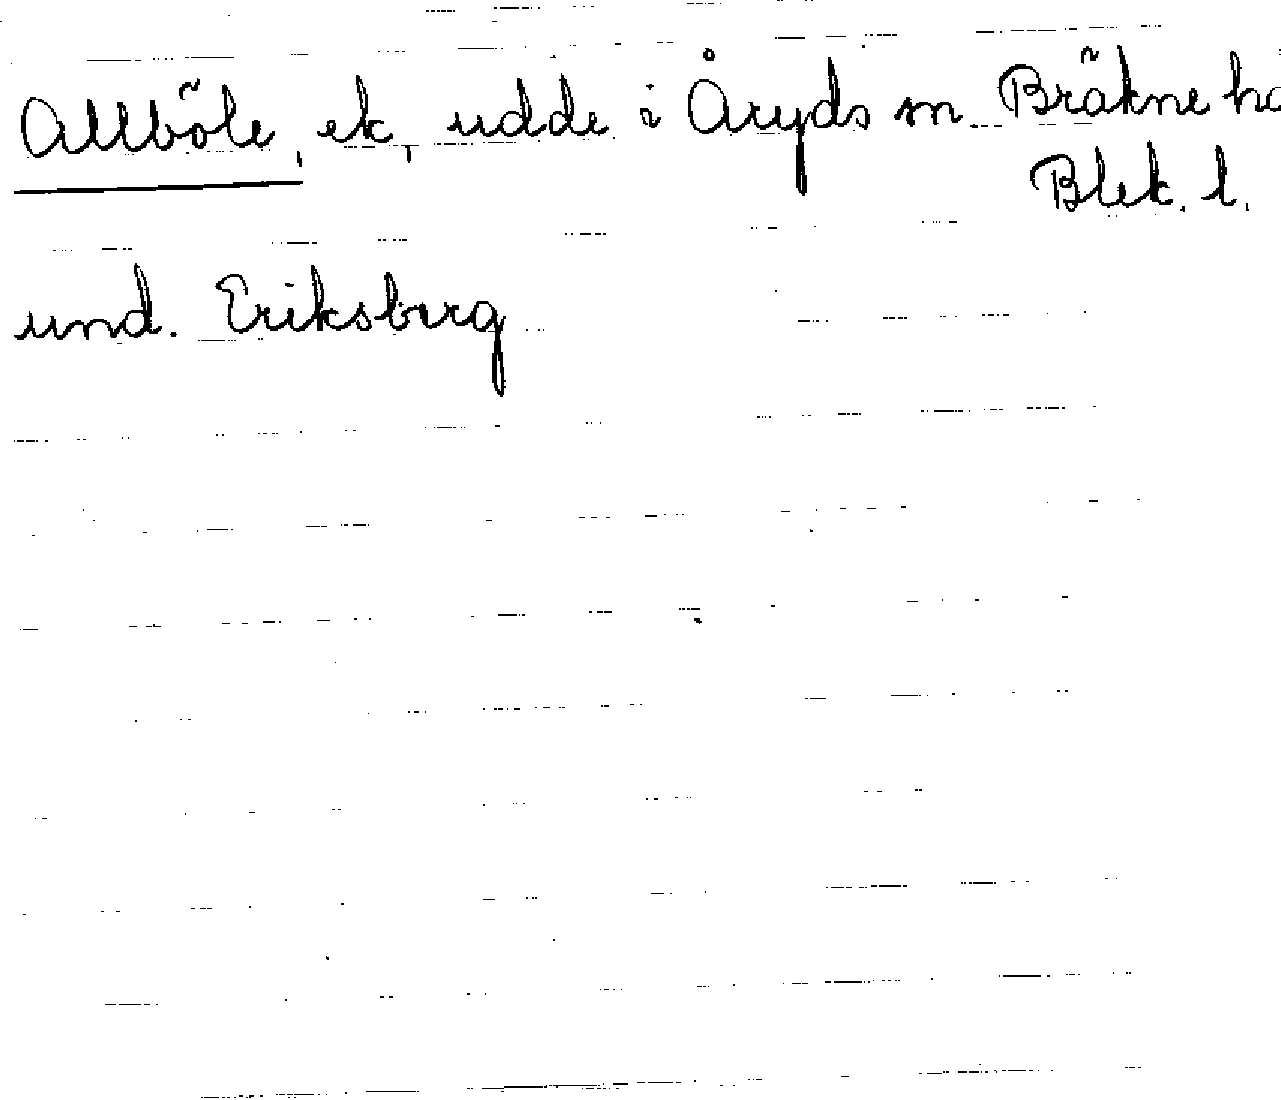 Allböle, ek, udde i Åryds sn. Bräkne ha
Blek. l.
und. Eriksberg